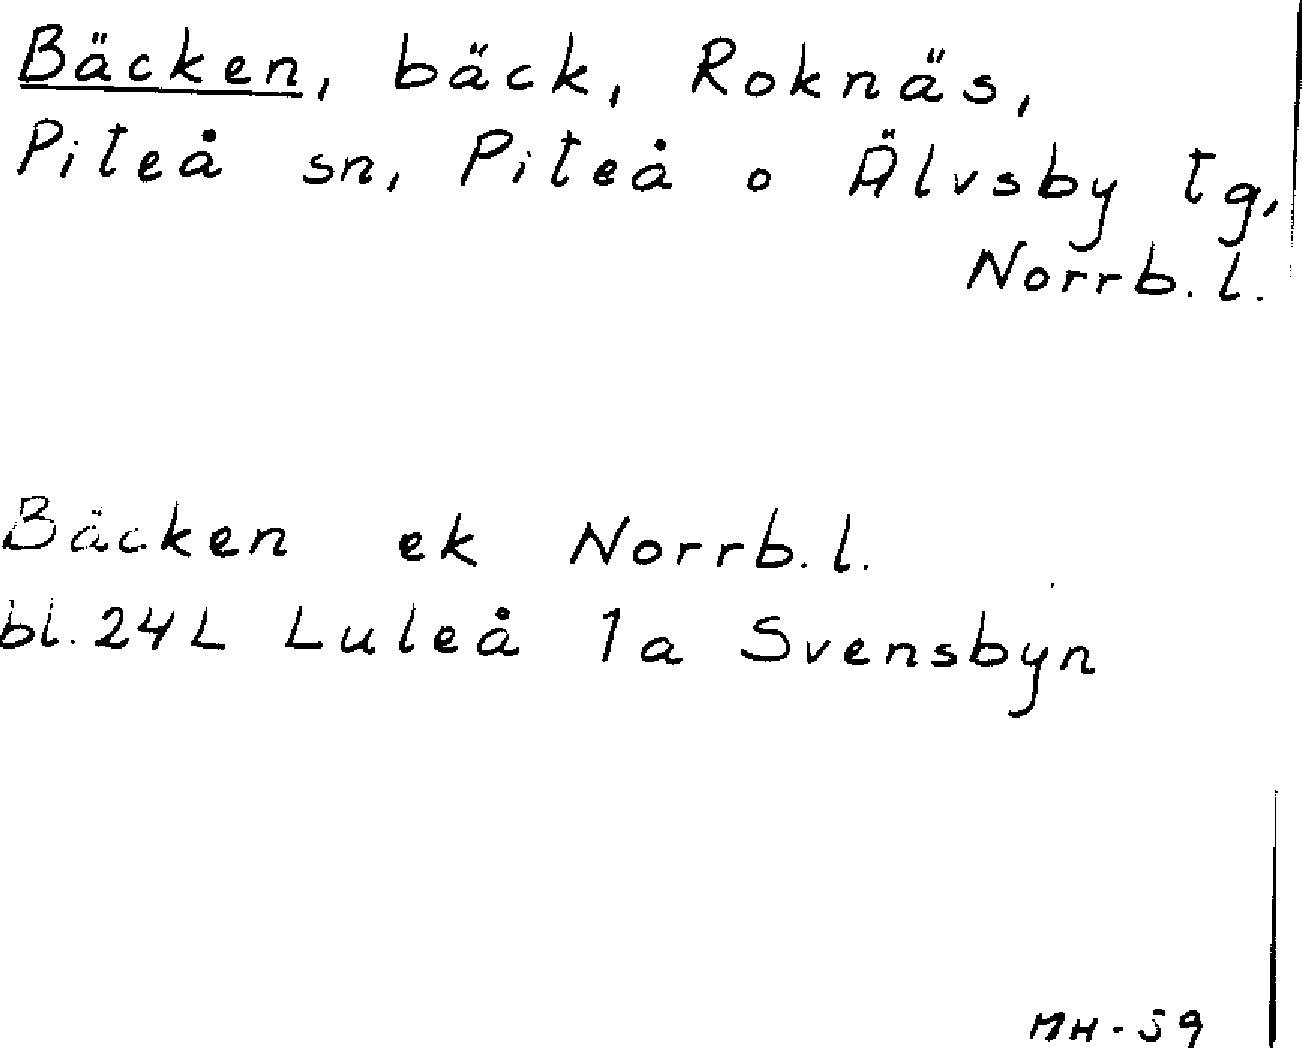 Bäcken, bäck, Roknäs,
Piteå sn, Piteå o Älvsby tg,
Norrb. l.
Bäcken ek Norrb. l.
bl. 24L Luleå 1a Svensbyn
MH-59